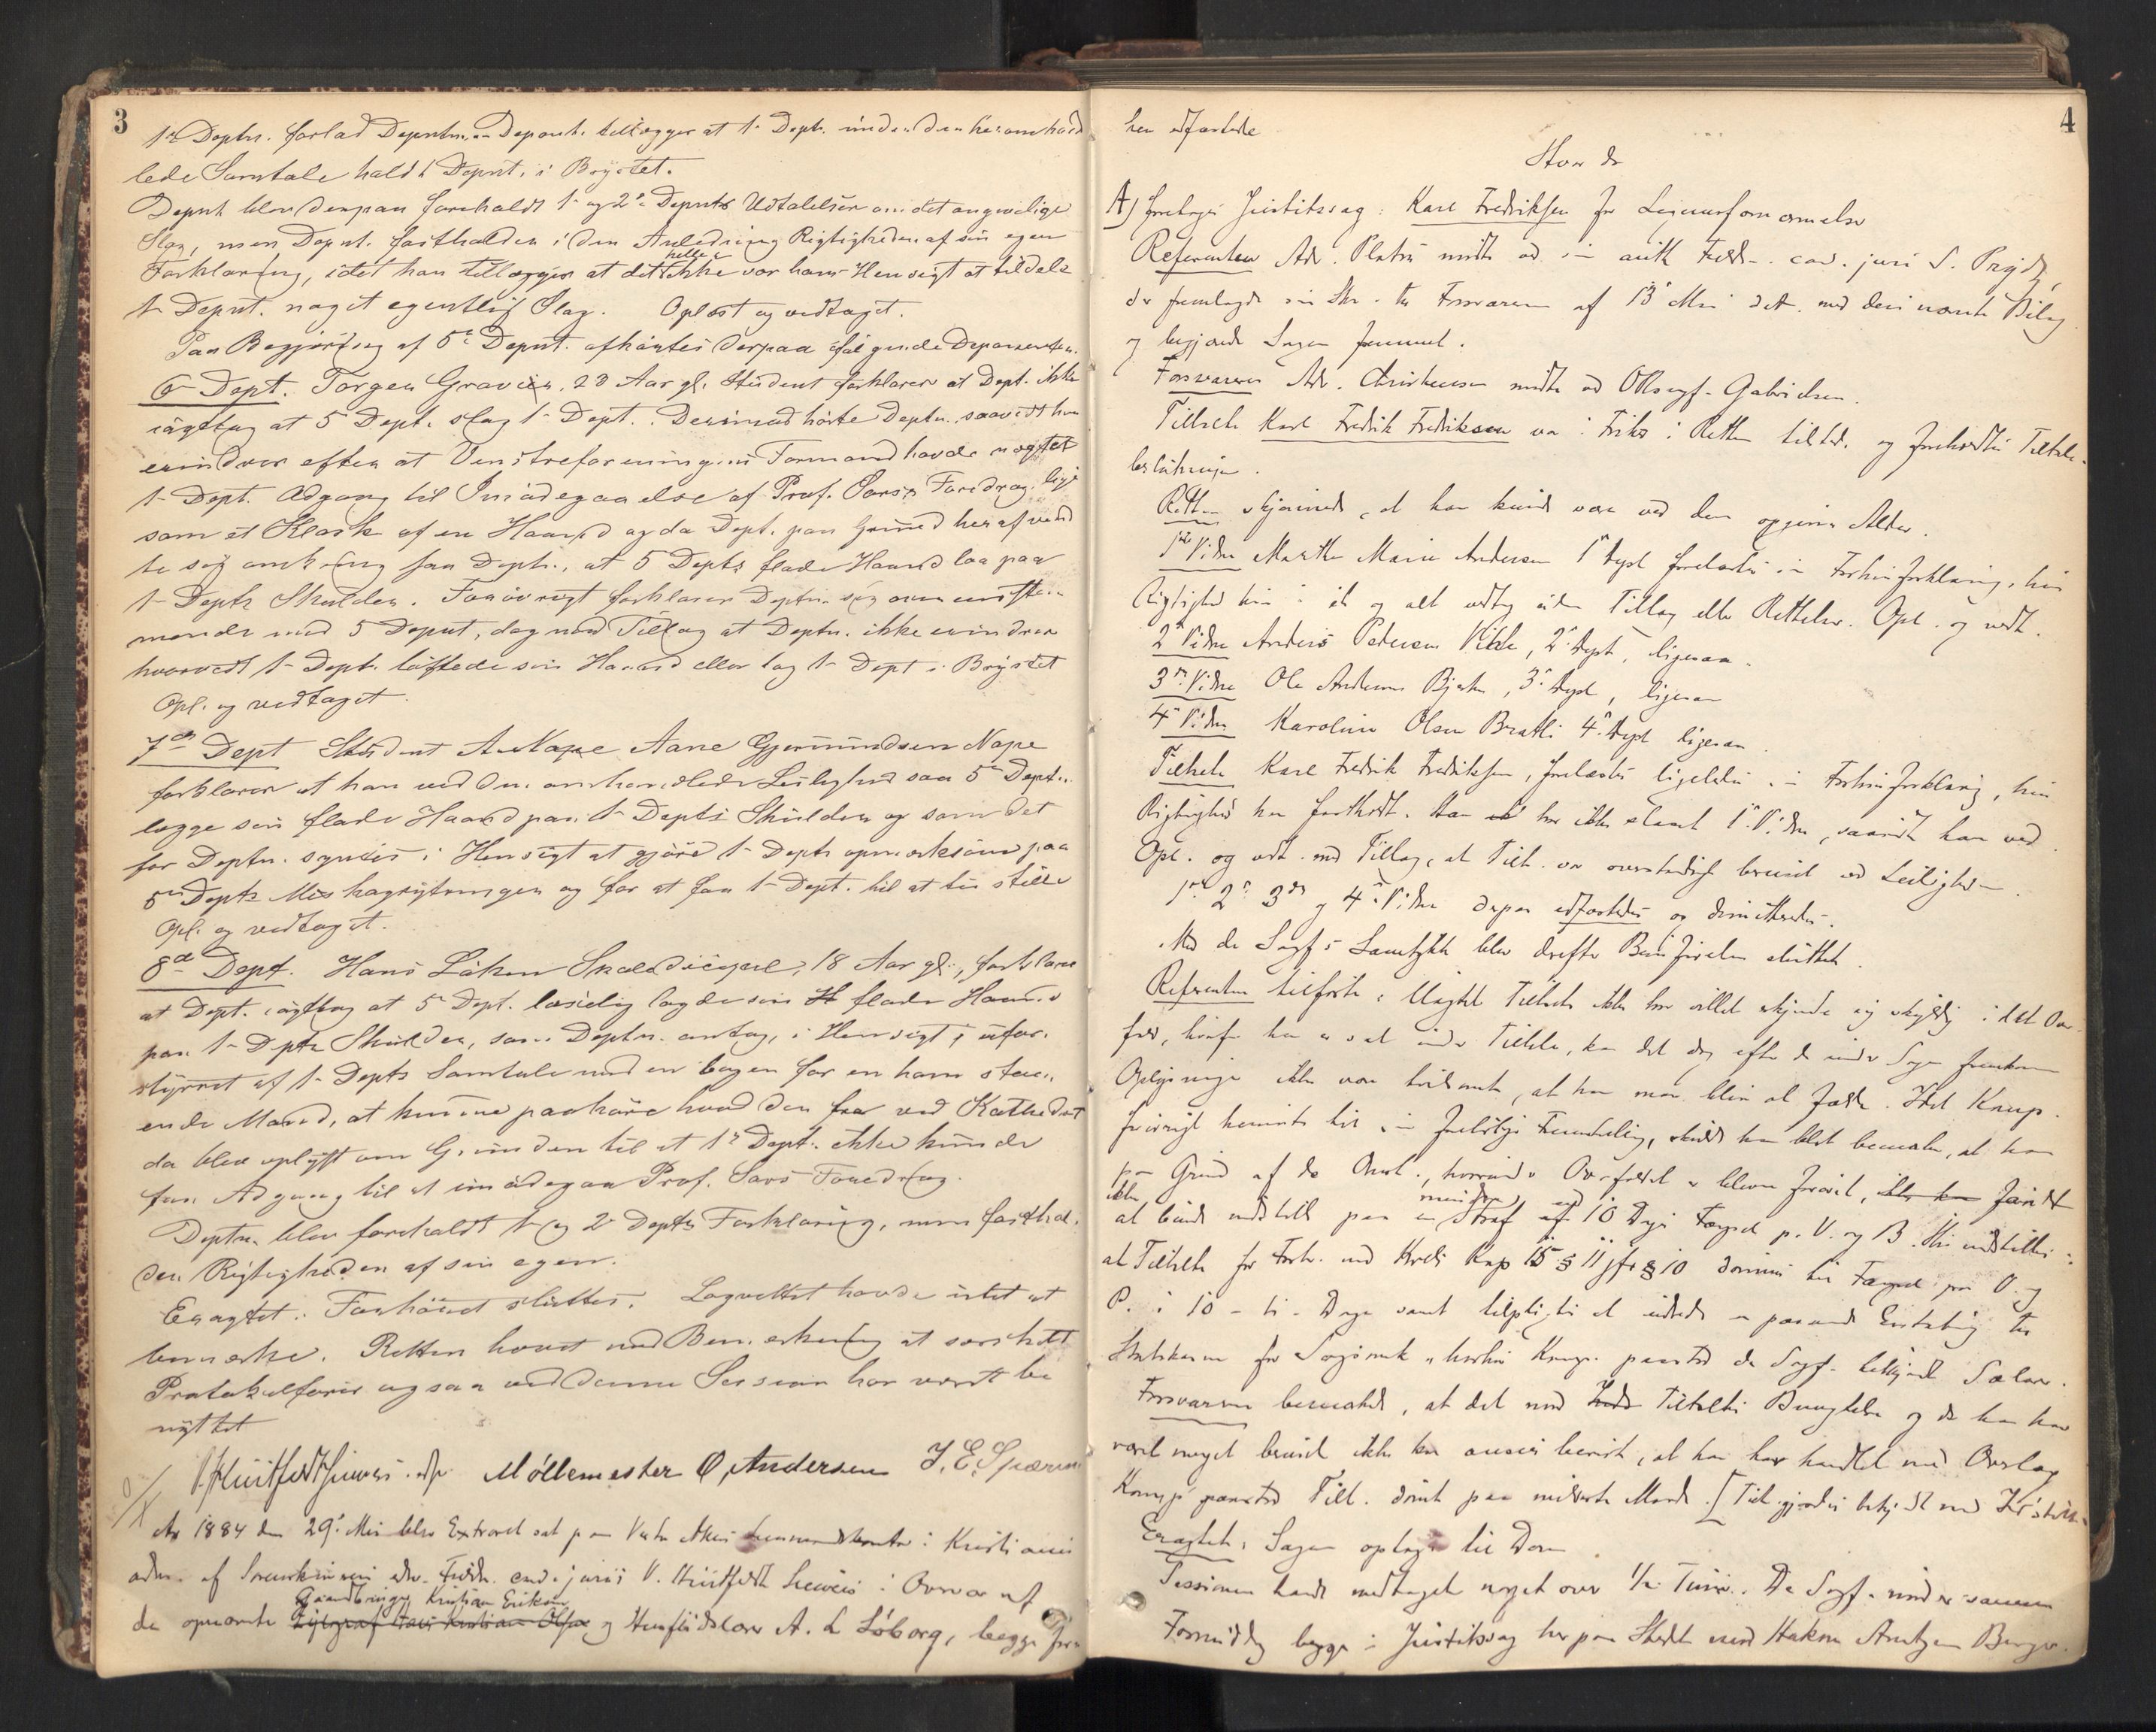 3
1ste Deptn. forlod Depntn. Deponenten tillægger at 1ste Dept. under den her omhand
lede Samtale holdt Depnt. i Brystet.
Depnt blev derpaa foreholdt 1ste og 2den Depnts Udtalelser om det angivelige
Slag, men Depnt. fastholder i den Anledning Rigtigheden af sin egen
Forklaring, idet han tillægger at det heller ikke var hans Hensigt at tildele
1ste Depnt. noget egentlig Slag. Oplæst og vedtaget.
Paa Begjæring af 5te Depnt. afhørtes derpaa følgende Deponenter.
6te Dept. Torgeir 23 Aar gl. Student forklarer at Dept. ikke
iagttog at 5te Dept. slog 1ste Dept. Derimod hørte Deptn. saavidt han
erindrer efter at Venstreforeningens Formand havde nægtet
1ste Dept. Adgang til Imødegaaelse af Prof. Sars's Foredrag lige
som et Klask af en Haand og da Dept. paa Grund heraf vend
te sig omkring saa Deptn., at 5te Depts flade Haand laa paa
1ste Depts Skulder. Forøvrigt forklarer Deptn. sig overensstem
mende med 5te Depnt, dog med Tillæg at Deptn. ikke erindrer
hvorvidt 1ste Dept. løftede sin Haand eller tog 1ste Dept i Brystet
Opl. og vedtaget.
7de Dept Student A. Nape Aane Gjermundsen Nape
forklarer at han ved den omhandlede Leilighed saa 5te Deptn.
lægge sin flade Haand paa 1ste Depts Skulder og som det
for Deptn. syntes i Hensigt at gjøre 1ste Dept opmærksom paa
5te Depts Mishagsytringer og for at faa 1ste Dept. til at tie stille
Opl. og vedtaget.
8de Dept. Hans Løken 18 Aar gl., forklarer
at Dept. iagttog at 5te Dept. læmpelig lagde sin H flade Haand
paa 1ste Depts Skulder, som Deptn. antog, i Hensigt i ufor
styrret af 1ste Depts Samtale med en bagen for en ham staa
ende Mand, at kunne paahøre hvad der fra ved Kathedret
da blev oplyst om Grunden til at 1ste Dept. ikke kunde
faa Adgang til at imødegaa Prof. Sars Foredrag.
Deptn. blev foreholdt 1ste og 2den Depts Forklaring, men fasthol
der Rigtigheden af sin egen.
Eragtet: Forhøret sluttes. Lagrettet havde intet at
bemærke. Retten hævet med Bemærkning at særskilt
Protokolfører ogsaa ved denne Session har været be
nyttet
Møllemester O, Andersen J. E.
Ar 1884 den 29de Mai blev Extraret sat paa Vestre Akers Lensmandskontor i Kristiania
adm. af Sorenskriveri edsv. Fuldm. cand. juris V. Huitfeldt Siewers i Overvær af
Gaardbruger Kristian Eriksen
de opnævnte og A. L Løborg, begge før
4
her edfæstede
Hvor da
A) foretoges Justitssag: Karl Fredriksen for Legemsfornærmelse
Referenten Adv. Platou mødte ved sin auth Fuldm. cand. juris S. Prydz,
der fremlagde sin Skr. til Forsvareren af 13de Mai d.A. med deri nævnte Bilag
og begjærede Sagen fremmet.
Forsvareren Adv. Christensen mødte ved ORsagf. Gabrielsen.
Tiltalte Karl Fredrik Fredriksen var i Frihed i Retten tilstede og foreholdtes Tiltale-
beslutningen.
Retten skjønnede, at han kunde være ved den opgivne Alder.
1ste Vidne Marthe Marie Andersen 1ste Dept forelæstes sin Forhørsforklaring, hvis
Rigtighed hun i et og alt vedtog uden Tillæg eller Rettelser. Opl. og vedt.
2det Vidne Anders Pedersen Vikle, 2den Dept, ligesaa.
3die Vidne Ole Andersen Bjerke, 3die Dept, ligesaa
4de Vidne Karoline Olsen Bratli 4de Dept ligesaa
Tiltalte Karl Fredrik Fredriksen, forelæstes ligeledes sin Forhørsforklaring, hvis
Rigtighed han fastholdt. Han har ikke slaaet 1ste Vidne, saavidt han ved
Opl. og vedt. med Tillæg, at Tilt. var overstadigt beruset ved Leiligheden.
1ste 2det 3die og 4de Vidne derpaa edfæstedes og dimitteredes.
Med de Sagf.s Samtykke blev derefter Bevisførselen sluttet.
Referenten tilførte: Uagtet Tiltalte ikke har villet erkjende sig skyldig i det Over-
fald, hvorfor han er sat under Tiltale, kan det dog efter de under Sagen fremkomne
Oplysninger ikke være tvilsomt, at han maa blive at fælde. Idet Komp.
forøvrigt henviste til sin foreløbige Fremstilling, skulde han blot bemærke, at han
paa Grund af de Omst., hvorunder Overfaldet er bleven forøvet, ikke han fandt
ikke at burde indstille paa en mindre Straf end 10 Dages Fængsel p. V. og B. Han indstillede:
at Tiltalte for Forbr. mod Krls Kap 15 § 11 jfr § 10 dømmes til Fængsel paa V. og
B. i 10 - ti - Dage samt tilpligtes at udrede en passende Erstatning til
Statskassen for Sagsomk. hvorhos Komp. paastod de Sagf. tilkjendt Salær.
Forsvareren bemærkede, at det mod Tiltaltes Benægtelse og da han har
været meget beruset ikke kan ansees bevist, at han har handlet med Overlæg
Komp paastod Tilt. dømt paa mildeste Maade. [Tilt. gjordes bekjendt med
Eragtet: Sagen optages til Dom
Sessionen havde medtaget noget over 1/2 Time. De Sagf. mødte samme
Formiddag begge i Justitssag her paa Stedet mod Hakon Arntzen Berger.